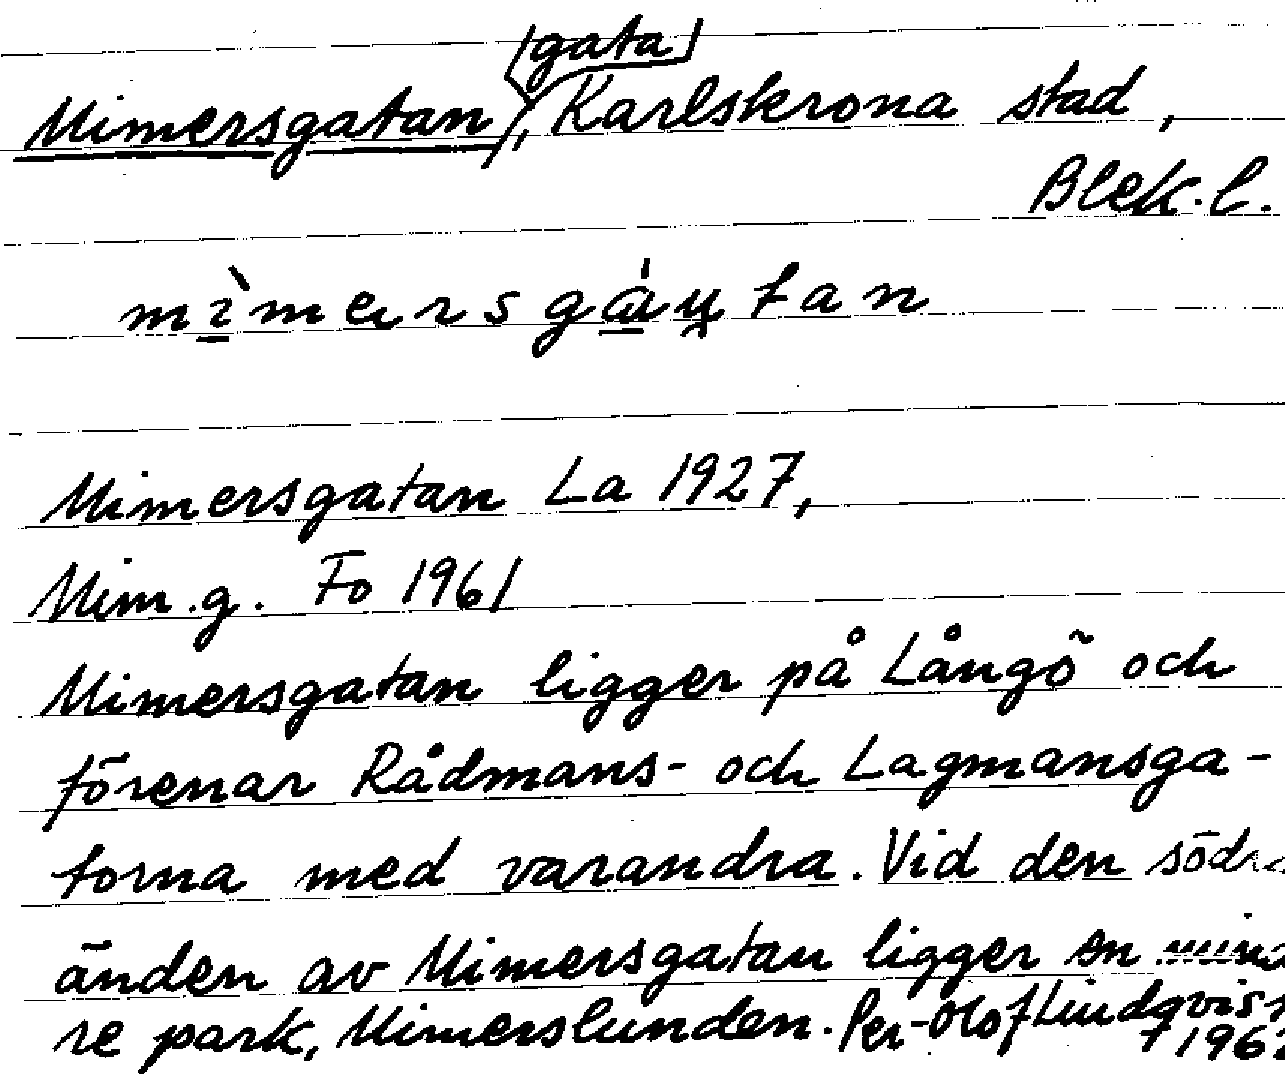 (gata)
Mimersgatan, Karlskrona stad,
Blek. l.
mìmersgáutan
Mimersgatan La 1927,
Mim.g. Fo 1961
Mimersgatan ligger på Långö och
förenar Rådmans- och Lagmansga-
torna med varandra. Vid den södra
änden av Mimersgatan ligger en mind
re park, Mimerslunden. Per-Olof Lindqvist